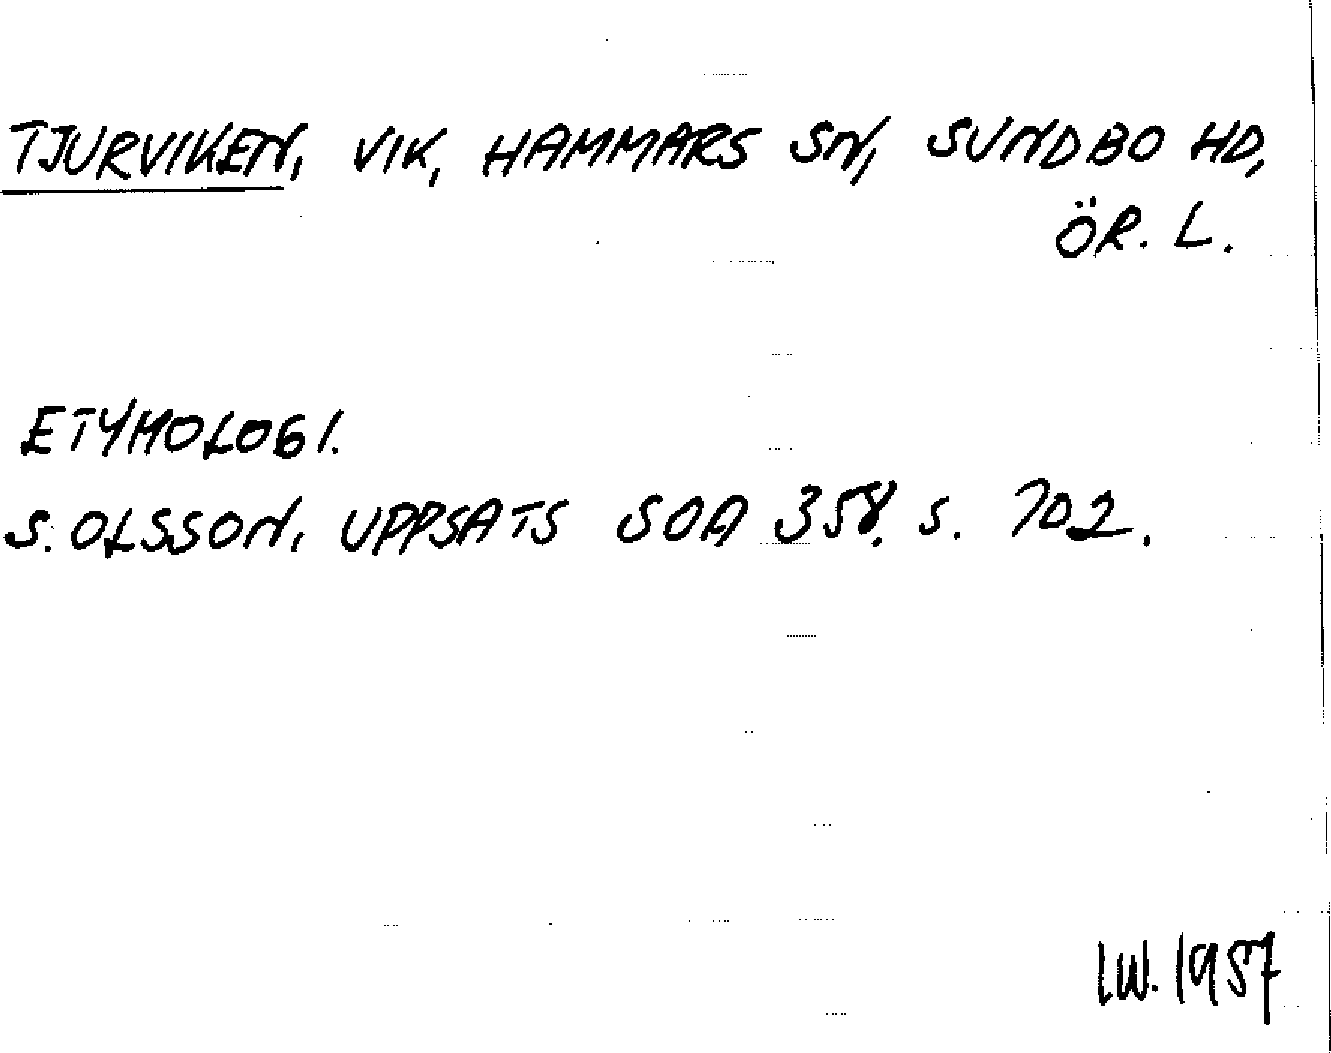 TJURVIKEN, VIK, HAMMARS SN, SUNDBO HD,
ÖR. L.
ETYMOLOGI.
S. OLSSON, UPPSATS SOA 358. S. 702.
LW. 1957